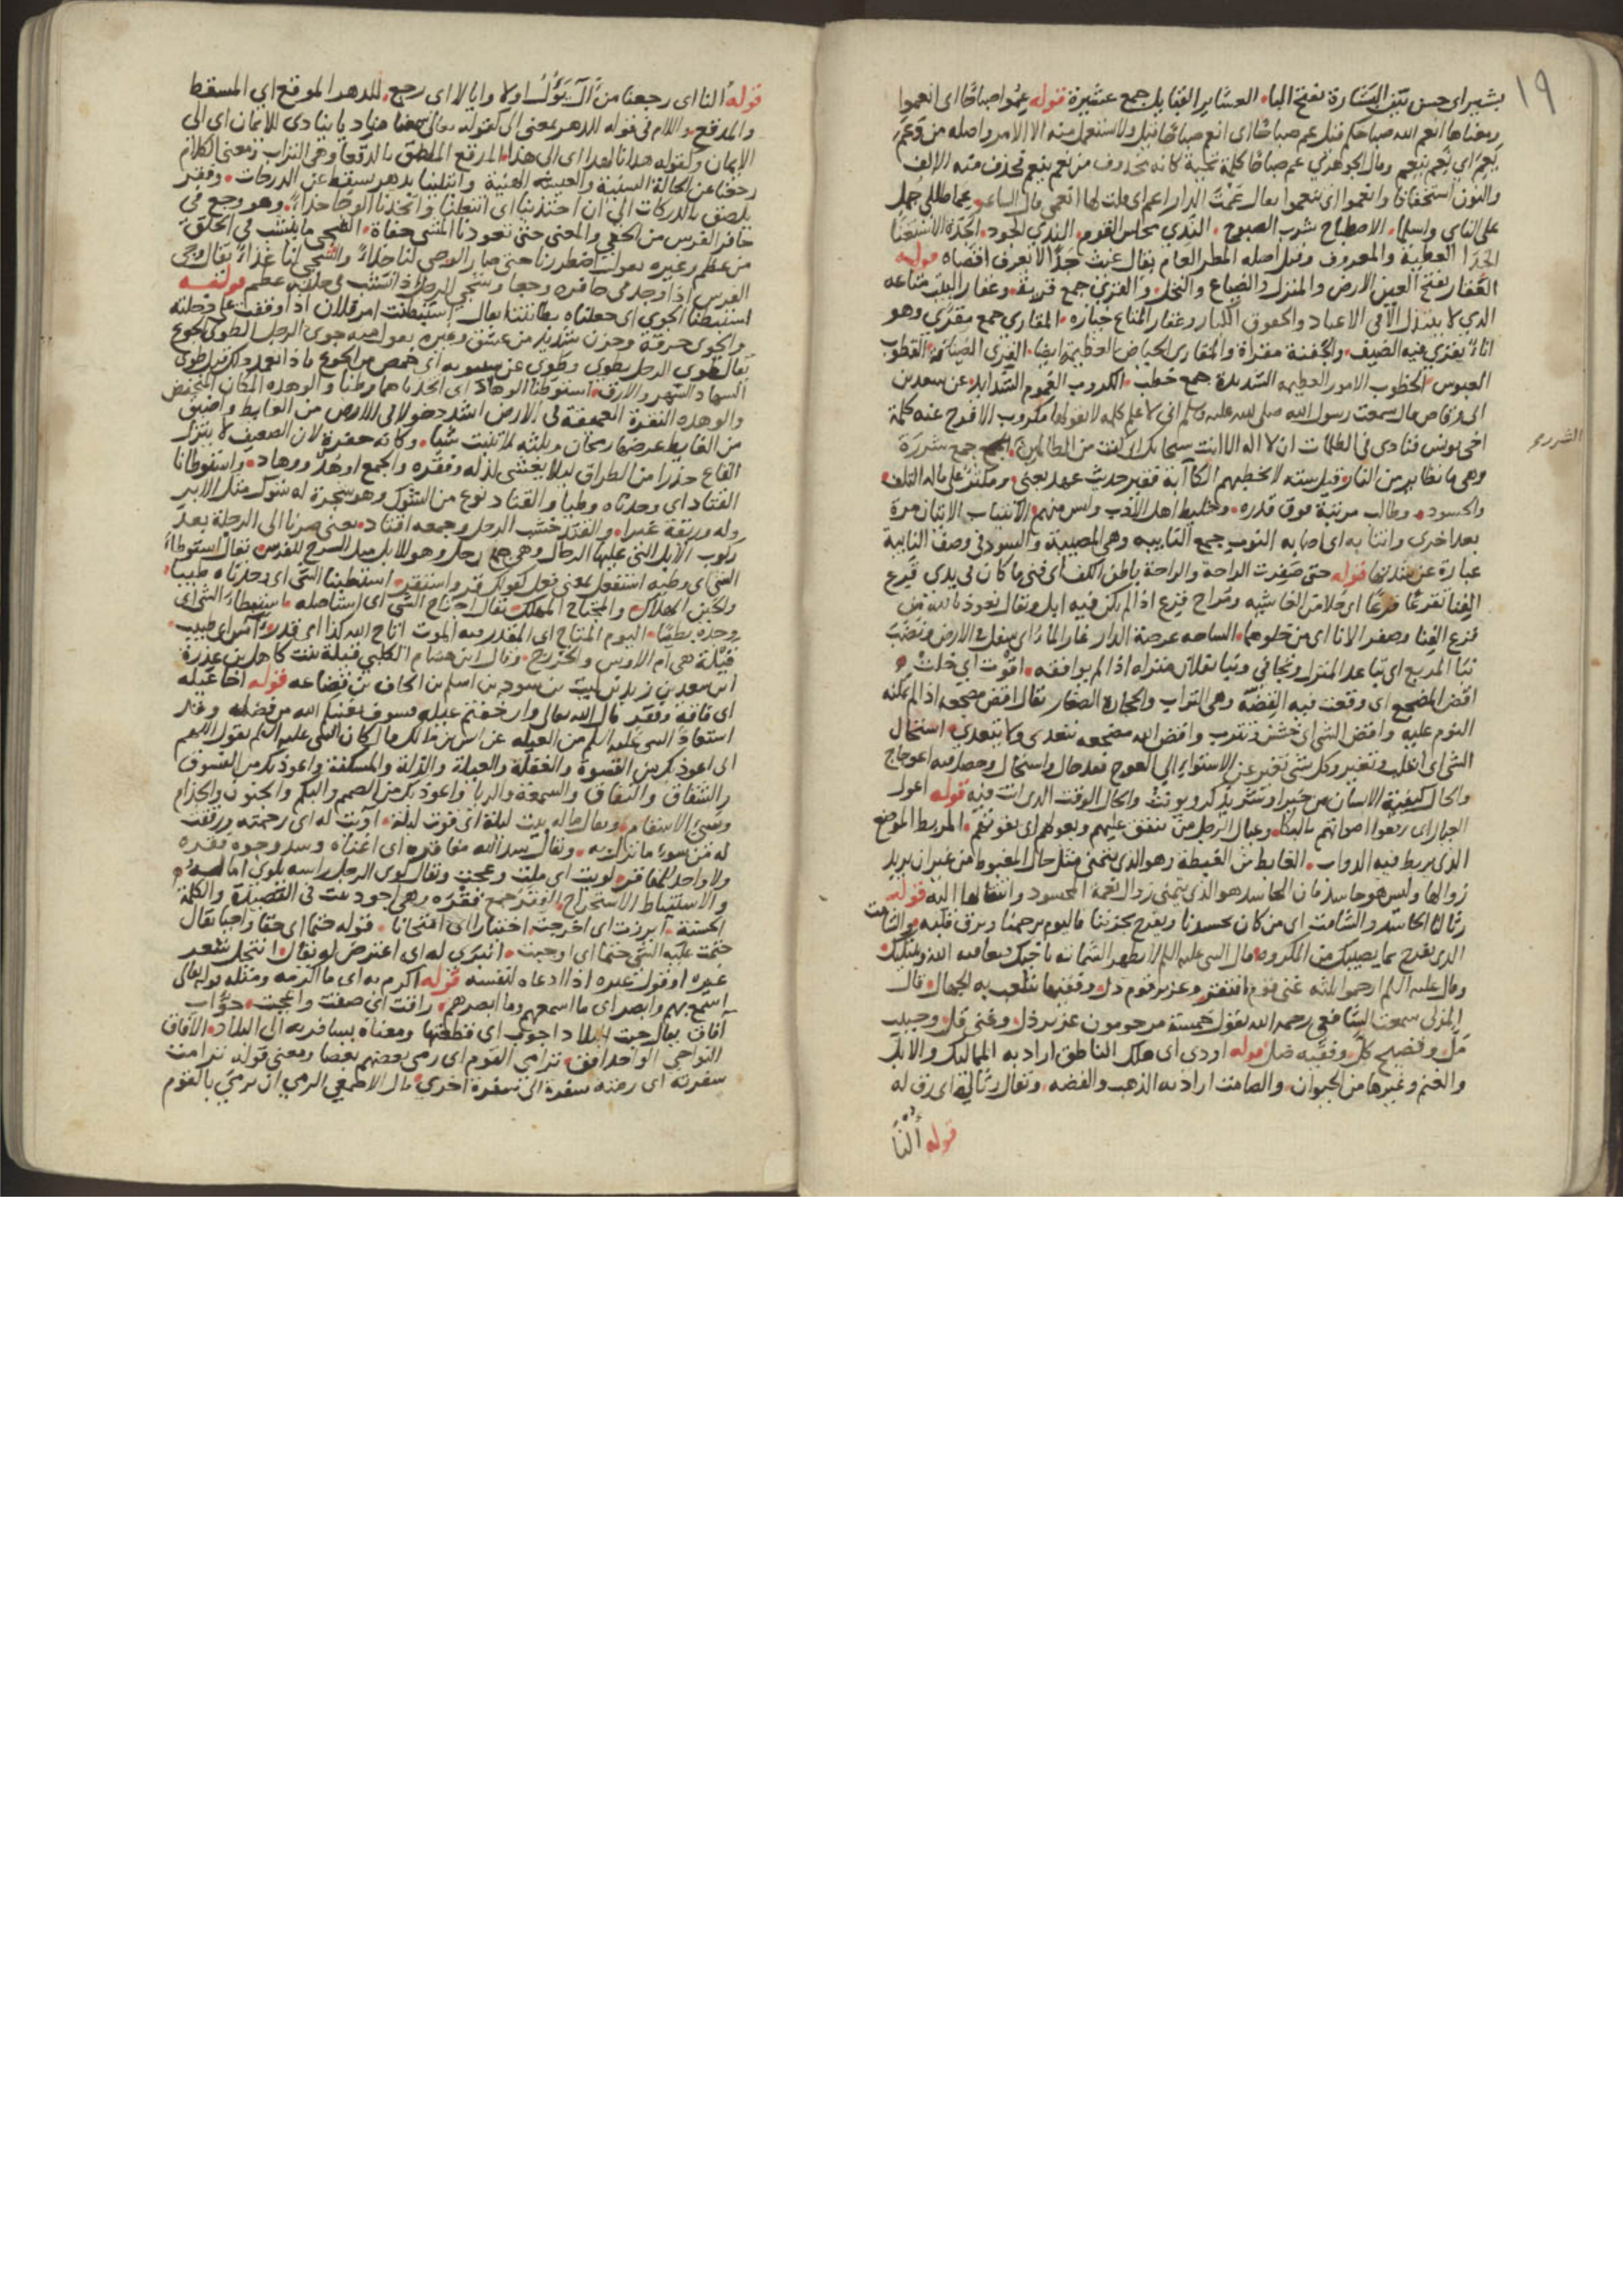 ١٩
بشير اى حسن بين البشارة بفتح الباء العشاير القبايل جمع عشيرة قوله عموا صباحًا اى انعموا
ومعناها انعم الله صباحكم قيل عم صباحًا اى انعم صباحًا قيل ولا يستعمل منه الا الامر واصله من وعم
يعم اى نعم ينعم وقال الجوهري عم صباحًا كلمة تحية كانه محذوف من نعم ينعم تحذف منه الالف
والنون استخفافًا وانعموا اى تنعموا يقال عمت الدار اعم اى قلت لها انعمى قال الشاعر عما طللي جمل
على الناى واسلما الاصطباح شرب الصبوح الندي مجلس القوم الندي الجود الجدة الاستغنا
الجدا العطية والمعروف وقيل اصله المطر العام يقال غيث جدا لا يعرف اقصاه قوله
العقار بفتح العين الارض والمنزل والضياع والنخل والقرى جمع قرية وعقار البيت متاعه
الذي لا يبتذل الا في الاعياد والحقوق الكبار وعقار المتاع خياره المقارى جمع مقرى وهو
اناء يقرى فيه الضيف والجفنة مقراة والمقارى الحياض العظيمة ايضا القرى الضيافة القطوب
العبوس الخطوب الامور العظيمة الشديدة جمع خطب الكروب الغموم الشدايد عن سعد بن
ابى وقاص قال سمعت رسول الله صلى الله عليه وسلم انى لا علم كلمة لا يقولها مكروب الا فرج عنه كلمة
اخى يونس فنادى في الظلمات ان لا اله الا انت سبحانك انى كنت من الظالمين جمع شررة
الشرر
وهى ما تطاير من النار وقيل ستة لا تخطيهم الكآبة فقير حديث عهد بغنى ومكثر على ماله التلف
والحسود وطالب مرتبة فوق قدره وخليط اهل الادب وليس منهم الانتياب الاتيان مرة
بعد اخرى وانتابه اى اصابه النوب جمع النايبة وهى المصيبة والسود في وصف النايبة
عبارة عن شدتها قوله حتى صفرت الراحة والراحة باطن الكف اى فنى ما كان في يدي قرع
الفنا يقرع قرعًا اى خلا من الغاشيه ومراح قرع اذا لم يكن فيه ابل ويقال نعوذ بالله من
قرع الفنا وصفر الانا اى من خلوهما الساحة عرصة الدار غار الماء اى سفل في الارض ونضب
نبا المربع اى تباعد المنزل وتجافى ونبا بفلان منزله اذا لم يوافقه اقوت اى خلت
اقض المضجع اى وقعت فيه القضة وهى التراب والحجارة الصغار يقال اقض مضجعه اذا لم يمكنه
النوم عليه واقض الشى اى خشن وتترب واقض الله مضجعه يتعدى ولا يتعدى استحال
الشى اى انقلب وتغير وكل شى تغير عن الاستواء الى العوج فقد حال واستحال وحصل فيه اعوجاج
والحال كيفية الانسان من خير او شر يذكر ويونث والحال الوقت الذى انت فيه قوله اعول
العيال اى رفعوا اصواتهم بالبكا وعيال الرجل من ينفق عليهم ويعولهم اى يقوتهم المربط الموضع
الذى يربط فيه الدواب الغابط من الغبطة وهو الذى يتمنى مثل حال المغبوط من غير ان يريد
زوالها وليس هو حاسد فان الحاسد هو الذى يتمنى زوال نعمة المحسود وانتقالها اليه قوله
رثا لنا الحاسد والشامت اى من كان يحسدنا ويفرح بحزننا فاليوم يرحمنا ويرق قلبه والشامت
الذى يفرح بما يصيبك من المكروه قال النبى عليه السلام لا تظهر الشماتة باخيك فيعافيه الله ويبتليك
وقال عليه السلام ارحموا ثلثة غنى قوم افتقر وعزيز قوم ذل وفقيها يتلعب به الجهال وقال
المزنى سمعت الشافعى رحمه الله يقول خمسة مرحومون عزيز ذل وغنى قل وحبيب
مل وفصيح كل وفقيه ضل قوله اودى اى هلك الناطق اراد به المماليك والابل
والغنم وغيرها من الحيوان والصامت اراد به الذهب والفضه ويقال رثا لى اى رق له
قوله ألنا
قوله النا اى رجعنا من آل يؤول اولا وايالا اى رجع للدهر الموقع اى المسقط
والمدقع واللام في قوله للدهر بمعنى الى كقوله تعالى سمعنا مناديا ينادى للايمان اى الى
الايمان وكقوله هدانا لهذا اى الى هذا المدقع الملصق بالدقعا وهى التراب ومعنى الكلام
رجعنا عن الحالة السنية والعيشة الهنية وابتلينا بدهر يسقط عن الدرجات وفقر
يلصق بالدركات الى ان احتذينا اى انتعلنا واتخذنا الوجا حذاء وهو وجع في
حافر الفرس من الحفى والمعنى حتى تعودنا المشى حفاة الشجى ما ينشب في الحلق
من عظم وغيره يقول اضطررنا حتى صار الوجى لنا حذاءً والشجى لنا غذاءً يقال وجى
الفرس اذا وجد في حافره وجعا وشجى الرجل اذا نشب في حلقه عظم قوله
استبطنا الجوى اى جعلناه بطانتنا يقال استبطنت امر فلان اذا وقفت على دخلته
والجوى حرقة وحزن شديد من عشق وغيره يقول منه جوى الرجل الطوى الجوع
يقال طوى الرجل يطوى وطوى عن سيبويه اى خمص من الجوع فاذا تعمد ذلك قيل طوى
السهاد السهر والارق استوطنا الوهاد اى اتخذناها وطنا والوهدة المكان المنخفض
والوهده النقرة العميقة في الارض اشد دخولا في الارض من الغايط واضيق
من الغايط عرضها رمحان وثلثة لا تنبت شيا وكانه حفرة لان الضعيف لا ينزل
القاع حذرا من الطراق ليلا يغشى لذله وفقره والجمع اوهد ووهاد واستوطانا
القتاد اى وجدناه وطيا والقتاد نوع من الشوك وهو شجرة له شوك مثل الابر
وله وريقة غبرا والقتد خشب الرحل وجمعه اقتاد يعنى صرنا الى الرجلة بعد
ركوب الابل التى عليها الرحال وهى جمع رحل وهو للابل مثل السرج للفرس يقال استوطا
الشى اى وطيه استفعل بمعنى فعل كقولك قر واستقر استطبنا الشى اى وجدناه طيبا
والحين الهلاك والمجتاح المهلك يقال اجتاح الشى اى استاصله استبطا الشى اى
وجده بطيا اليوم المتاح اى المقدر فيه الموت اتاح الله كذا اى قدره آس اى طبيب
قيلة هى ام الاوس والخزرج وقال ابن هشام الكلبي قيلة بنت كاهل بن عذرة
ابن سعد بن زيد بن ليث بن سود بن اسلم بن الحاف بن قضاعه قوله اخا عيله
اى فاقة وفقر قال الله تعالى وان خفتم عيلة فسوف يغنيكم الله من فضله وقد
استعاذ النبى عليه السلام من العيله عن انس بن مالك قال كان النبى عليه السلام يقول اللهم
انى اعوذ بك من القسوة والغفلة والعيلة والذلة والمسكنة واعوذ بك من الفسوق
والشقاق والنفاق والسمعة والريا واعوذ بك من الصمم والبكم والجنون والجذام
وسىء الاسقام ويقال ماله بيت ليلة اى قوت ليلة آويت له اى رحمته ورققت
له من سوء ما نزل به ويقال سد الله مفاقره اى اغناه وسد وجوه فقره
ولا واحد للمفاقر لويت اى ملت وعجت ويقال لوى الرجل راسه يلوى اماله
والاستنباط الاستخراج الفقر جمع فقره وهى اجود بيت في القصيدة والكلمة
الحسنة ابرزت اى اخرجت اختبارا اى امتحانا قوله حتما اى حقا واجبا يقال
حتمت عليه الشى حتما اى اوجبت انبرى له اى اعترض له يقال انتحل شعر
غيره او قول غيره اذا ادعاه لنفسه قوله اكرم به اى ما اكرمه ومثله قوله تعالى
اسمع بهم وابصر اى ما اسمعهم وما ابصرهم راقت اى صفت واعجبت جواب
آفاق يقال جبت البلاد اجوب اى قطعتها ومعناه يسافر به الى البلاد الآفاق
النواحى الواحد افق ترامى القوم اى رمى بعضهم بعضا ومعنى قوله ترامت
سفرته اى رمته سفرة الى سفرة اخرى قال الاصمعى الرمى ان ترمى بالقوم